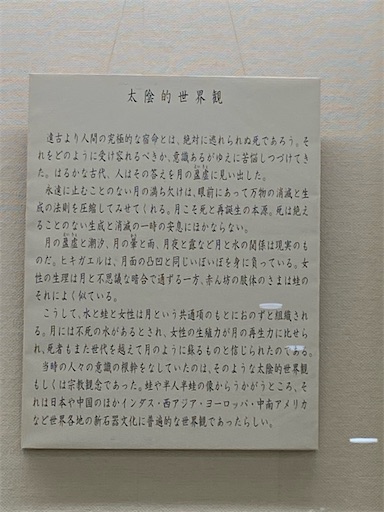 太陰的世界観
遠古より人間の究極的な宿命とは、絶対に逃れられぬ死であろう。そ
れをどのように受け容れるべきか、意識あるがゆえに苦悩しつづけてき
た。はるかな古代、人はその答えを月の盈虚に見い出した。
永遠に止むことのない月の満ち欠けは、眼前にあって万物の消滅と生
成の法則を圧縮してみせてくれる。月こそ死と再誕生の本源。死は絶え
ることのない生成と消滅の一時の安息にほかならない。
月の盈虚と潮汐、月の暈と雨、月夜と露など月と水の関係は現実のも
のだ。ヒキガエルは、月面の凸凹と同じいぼいぼを身に負っている。女
性の生理は月と不思議な暗合で通ずる一方、赤ん坊の肢体のさまは蛙の
それによく似ている。
こうして、水と蛙と女性は月という共通項のもとにおのずと組織され
る。月には不死の水があるとされ、女性の生殖力が月の再生力に比せら
れ、死者もまた世代を越えて月のように蘇るものと信じられたのである。
当時の人々の意識の根幹をなしていたのは、そのような太陰的世界観
もしくは宗教観念であった。蛙や半人半蛙の像からうかがうところ、そ
れは日本や中国のほかインダス・西アジア・ヨーロッパ・中南アメリカ
など世界各地の新石器文化に普遍的な世界観であったらしい。